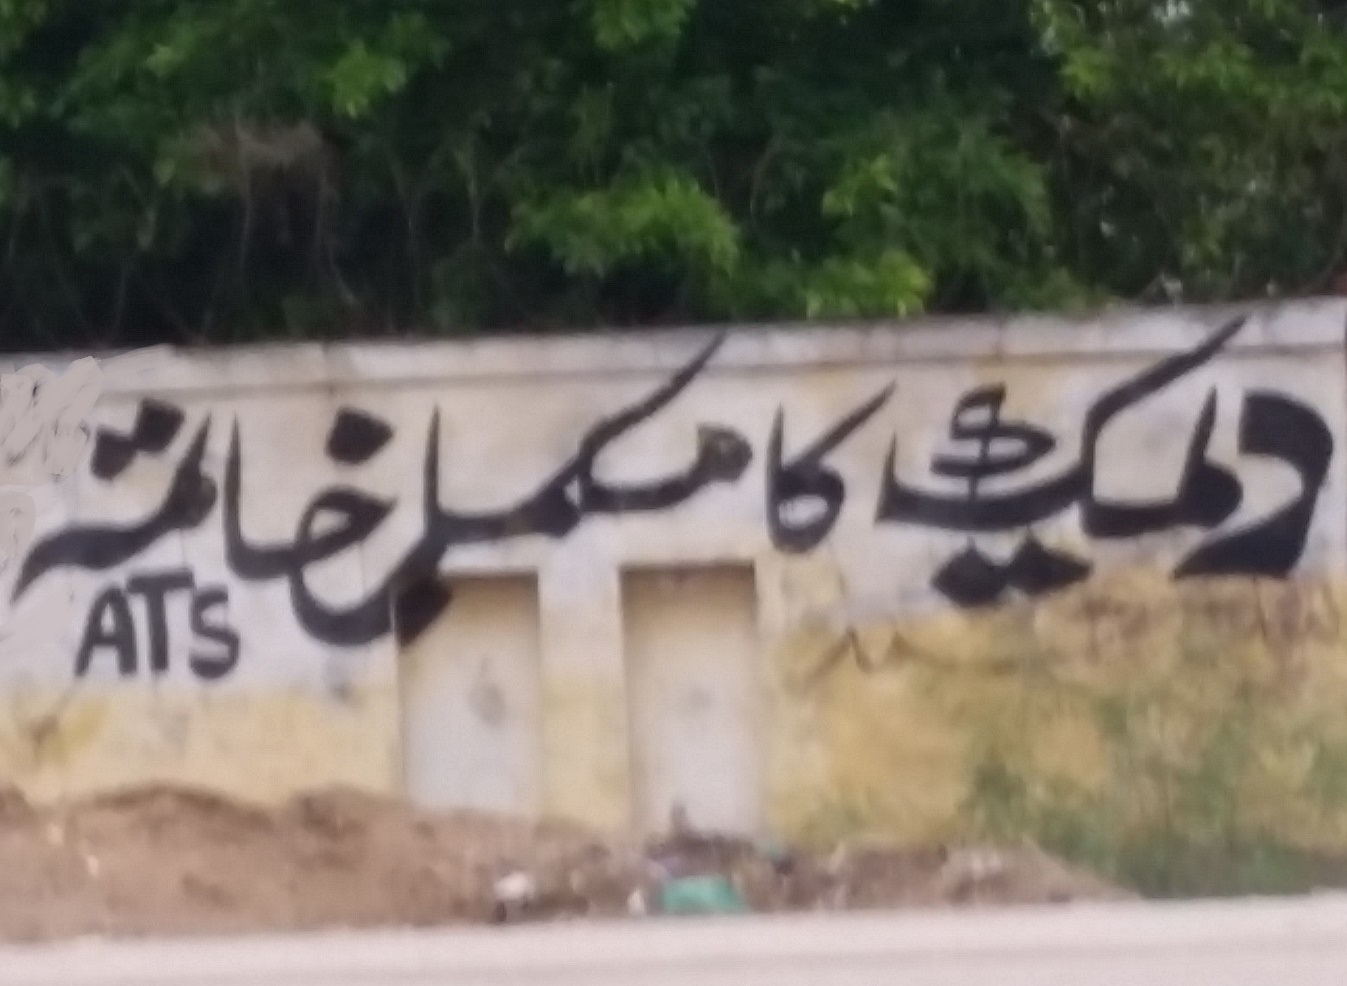 دیمک کا مکمل خاتمہ
ATS